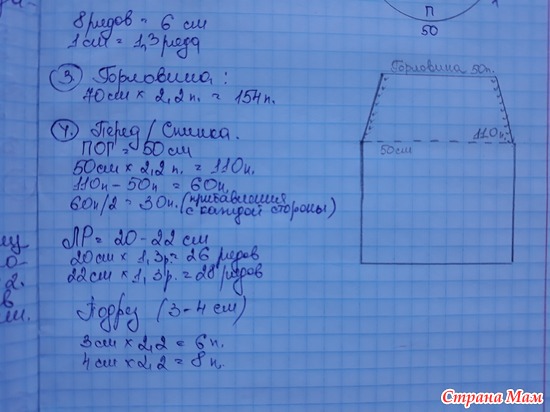 8 рядов = 6 см
1 см = 1,3 ряда
П
50
3. Горловина:
70 см × 2,2 п. = 154 п.
Горловина 50п.
110п.
50см
4. Перед/Спинка.
ПОГ = 50 см
50 см × 2,2 п. = 110 п.
110п - 50п = 60п.
60п/2 = 30п. (прибавления
с каждой стороны)
ЛР = 20 - 22 см
20 см × 1,3 р. = 26 рядов
22 см × 1,3 р. = 28 рядов
Подрез (3-4 см)
3 см × 2,2 = 6 п.
4 см × 2,2 = 8 п.
Страна Мам